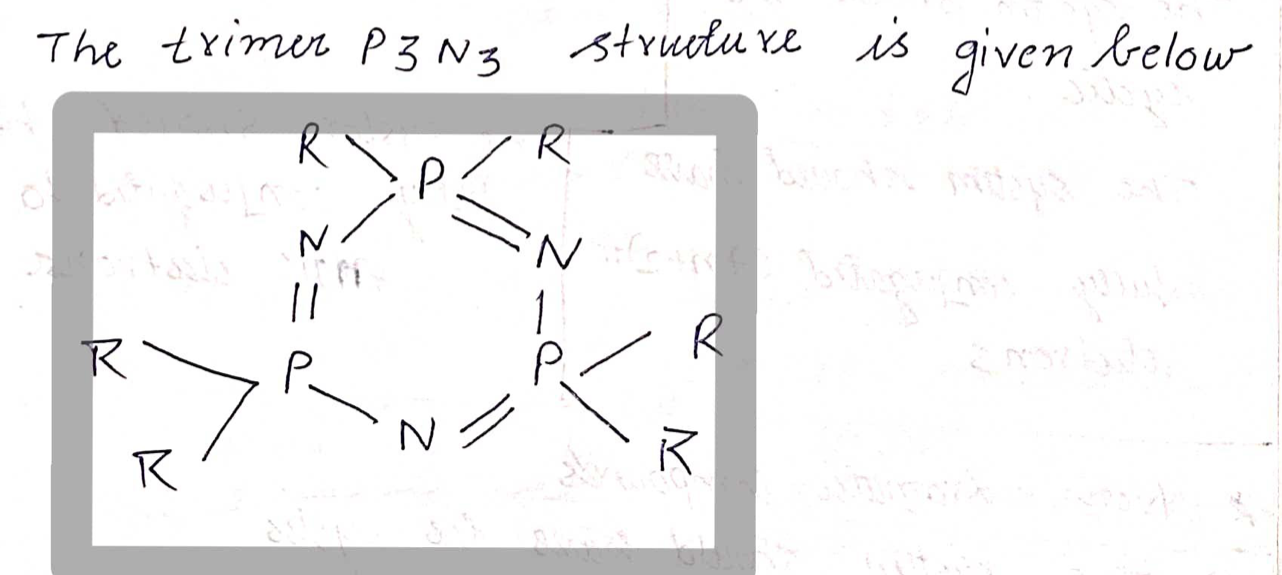 The trimer P3N3 structure is given below
R R
P
N N
R P P R
N
R R